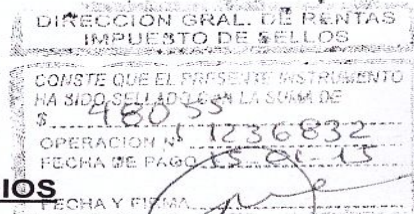 DIRECCION GRAL. DE RENTAS
IMPUESTO DE SELLOS
CONSTE QUE EL PRESENTE INSTRUMENTO
HA SIDO SELLADO CON LA SUMA DE
$ 480 55
OPERACION Nº 1236832
FECHA DE PAGO 15-01-15
IOS
FECHA Y FIRMA